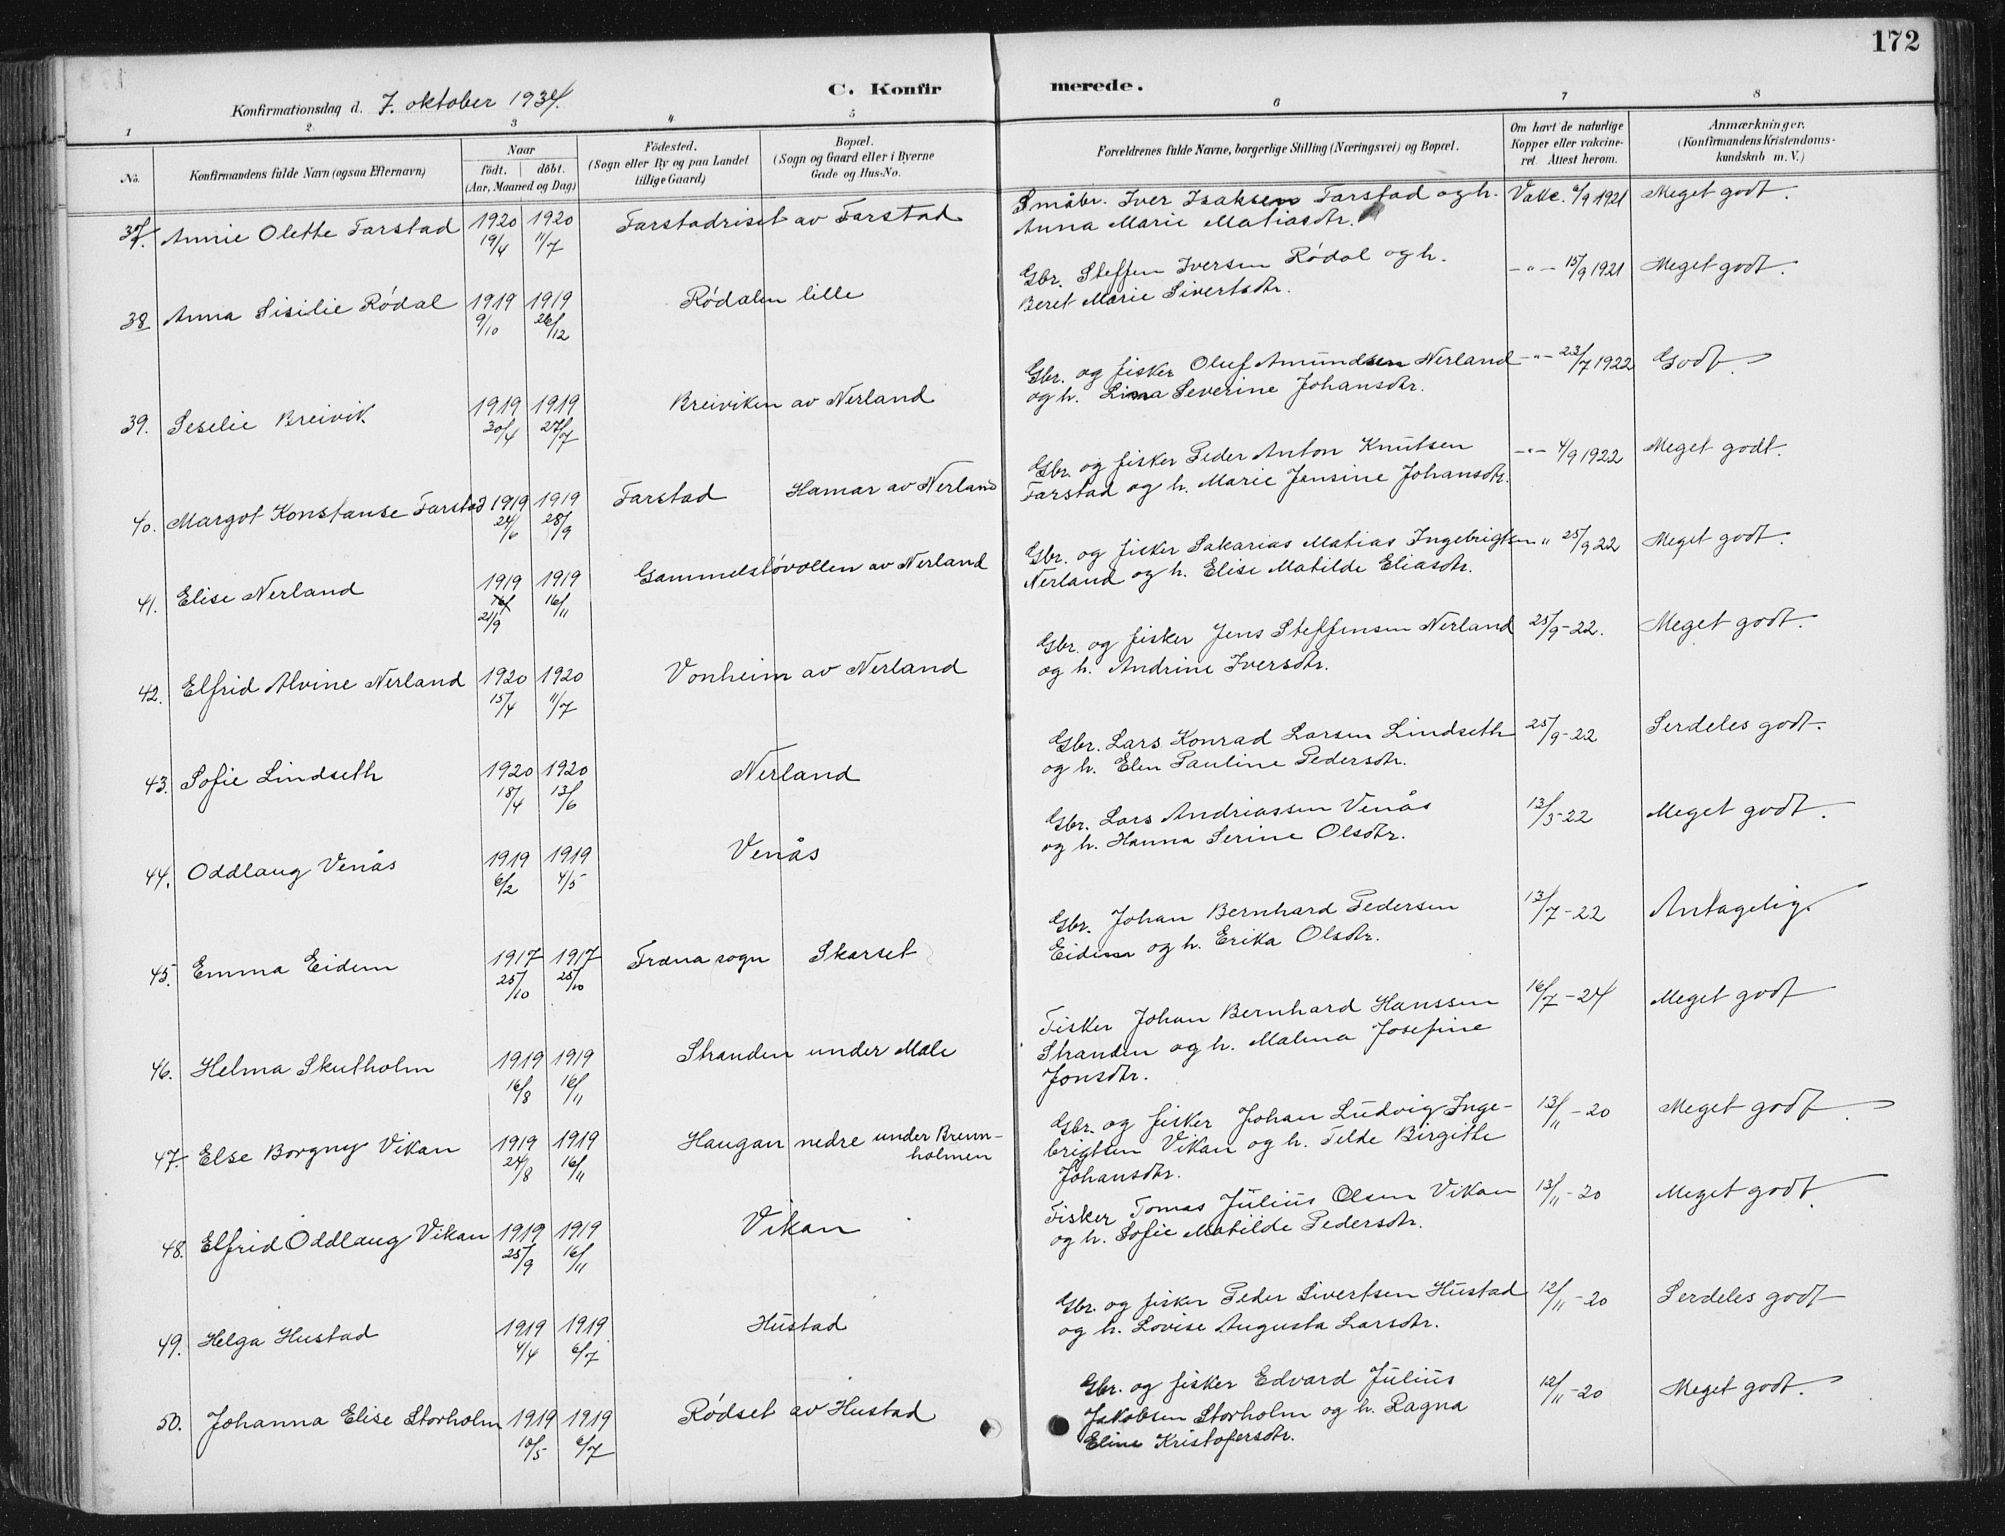 172
C. Konfirmerede.
Konfirmationsdag d. 7. oktober 1934.
1 2 3 4 5 6 7 8
No. Konfirmandens fulde Navn (ogsaa Efternavn) Naar födt. döbt. (Aar, Maaned og Dag) Födested. (Sogn eller By og paa Landet tillige Gaard) Bopæl. (Sogn og Gaard eller i Byerne Gade og Hus-No. Forældrenes fulde Navne, borgerlige Stilling (Næringsvei) og Bopæl. Om havt de naturlige Kopper eller vakcineret. Attest herom. Anmærkninger. (Konfirmandens Kristendomskundskab m. V.)
37. Annie Olette Farstad 1920 19/4 1920 11/7 Farstadriset av Farstad Småbr. Iver Isaksen Farstad og h. Vakc. 6/9 1921 Meget godt.
Anna Marie Matiasdtr.
38 Anna Sisilie Rødal 1919 9/10 1919 26/12 Rødalen lille Gbr. Steffen Iversen Rødal og h. -"- 15/9 1921 Meget godt.
Beret Marie Sivertsdtr.
39. Seselie Breivik 1919 30/4 1919 27/7 Breiviken av Nerland Gbr. og fisker Oluf Amundsen Nerland -"- 23/7 1922 Godt.
og h. Lina Severine Johansdtr.
40. Margot Konstanse Farstad 1919 24/6 1919 28/9 Farstad Hamar av Nerland Gbr. og fisker Peder Anton Knutsen -"- 4/9 1922 Meget godt.
Farstad og h. Marie Jensine Johansdtr.
41. Elise Nerland 1919 21/9 1919 16/11 Gammelstøvollen av Nerland Gbr. og fisker Sakarias Matias Ingebrigtsen " 25/9 22 Meget godt.
Nerland og h. Elise Matilde Eliasdtr.
42. Elfrid Alvine Nerland 1920 15/4 1920 11/7 Vonheim av Nerland Gbr. og fisker Jens Steffensen Nerland 25/9-22. Meget godt.
og h. Andrine Iversdtr.
43. Sofie Lindseth 1920 18/4 1920 13/6 Nerland Gbr. Lars Konrad Larsen Lindseth 25/9-22 Serdeles godt.
og h. Elen Pauline Pedersdtr.
44. Oddlaug Venås 1919 6/2 1919 4/5 Venås Gbr. Lars Andreassen Venås 13/5-22 Meget godt.
og h. Hanna Serine Olsdtr.
45. Emma Eidem 1917 25/10 1917 25/10 Fræna sogn Skarset Gbr. Johan Bernhard Pedersen 13/7-22 Antagelig.
Eidem og h. Erika Olsdtr.
46. Helma Skutholm 1919 16/8 1919 16/11 Stranden under Male Fisker Johan Bernhard Hanssen 16/7-24 Meget godt
Stranden og h. Malena Josefine
Jonsdtr.
47. Else Borgny Vikan 1919 24/8 1919 16/11 Haugan nedre under Brennholmen Gbr. og fisker Johan Ludvig Inge- 13/11-20 Meget godt.
brigtsen Vikan og h. Telde Birgitte
Johansdtr.
48. Elfrid Oddlaug Vikan 1919 25/9 1919 16/11 Vikan Fisker Tomas Julius Olsen Vikan 13/11-20 Meget godt.
og h. Sofie Matilde Pedersdtr.
49. Helga Hustad 1919 4/4 1919 6/7 Hustad Gbr. og fisker Peder Sivertsen Hustad 12/11-20 Serdeles godt
og h. Lovise Augusta Larsdtr.
50. Johanna Elise Storholm 1919 10/5 1919 6/7 Rødset av Hustad Gbr. og fisker Edvard Julius 12/11-20 Meget godt.
Jakobsen Storholm og h. Ragna
Eline Kristofersdtr.